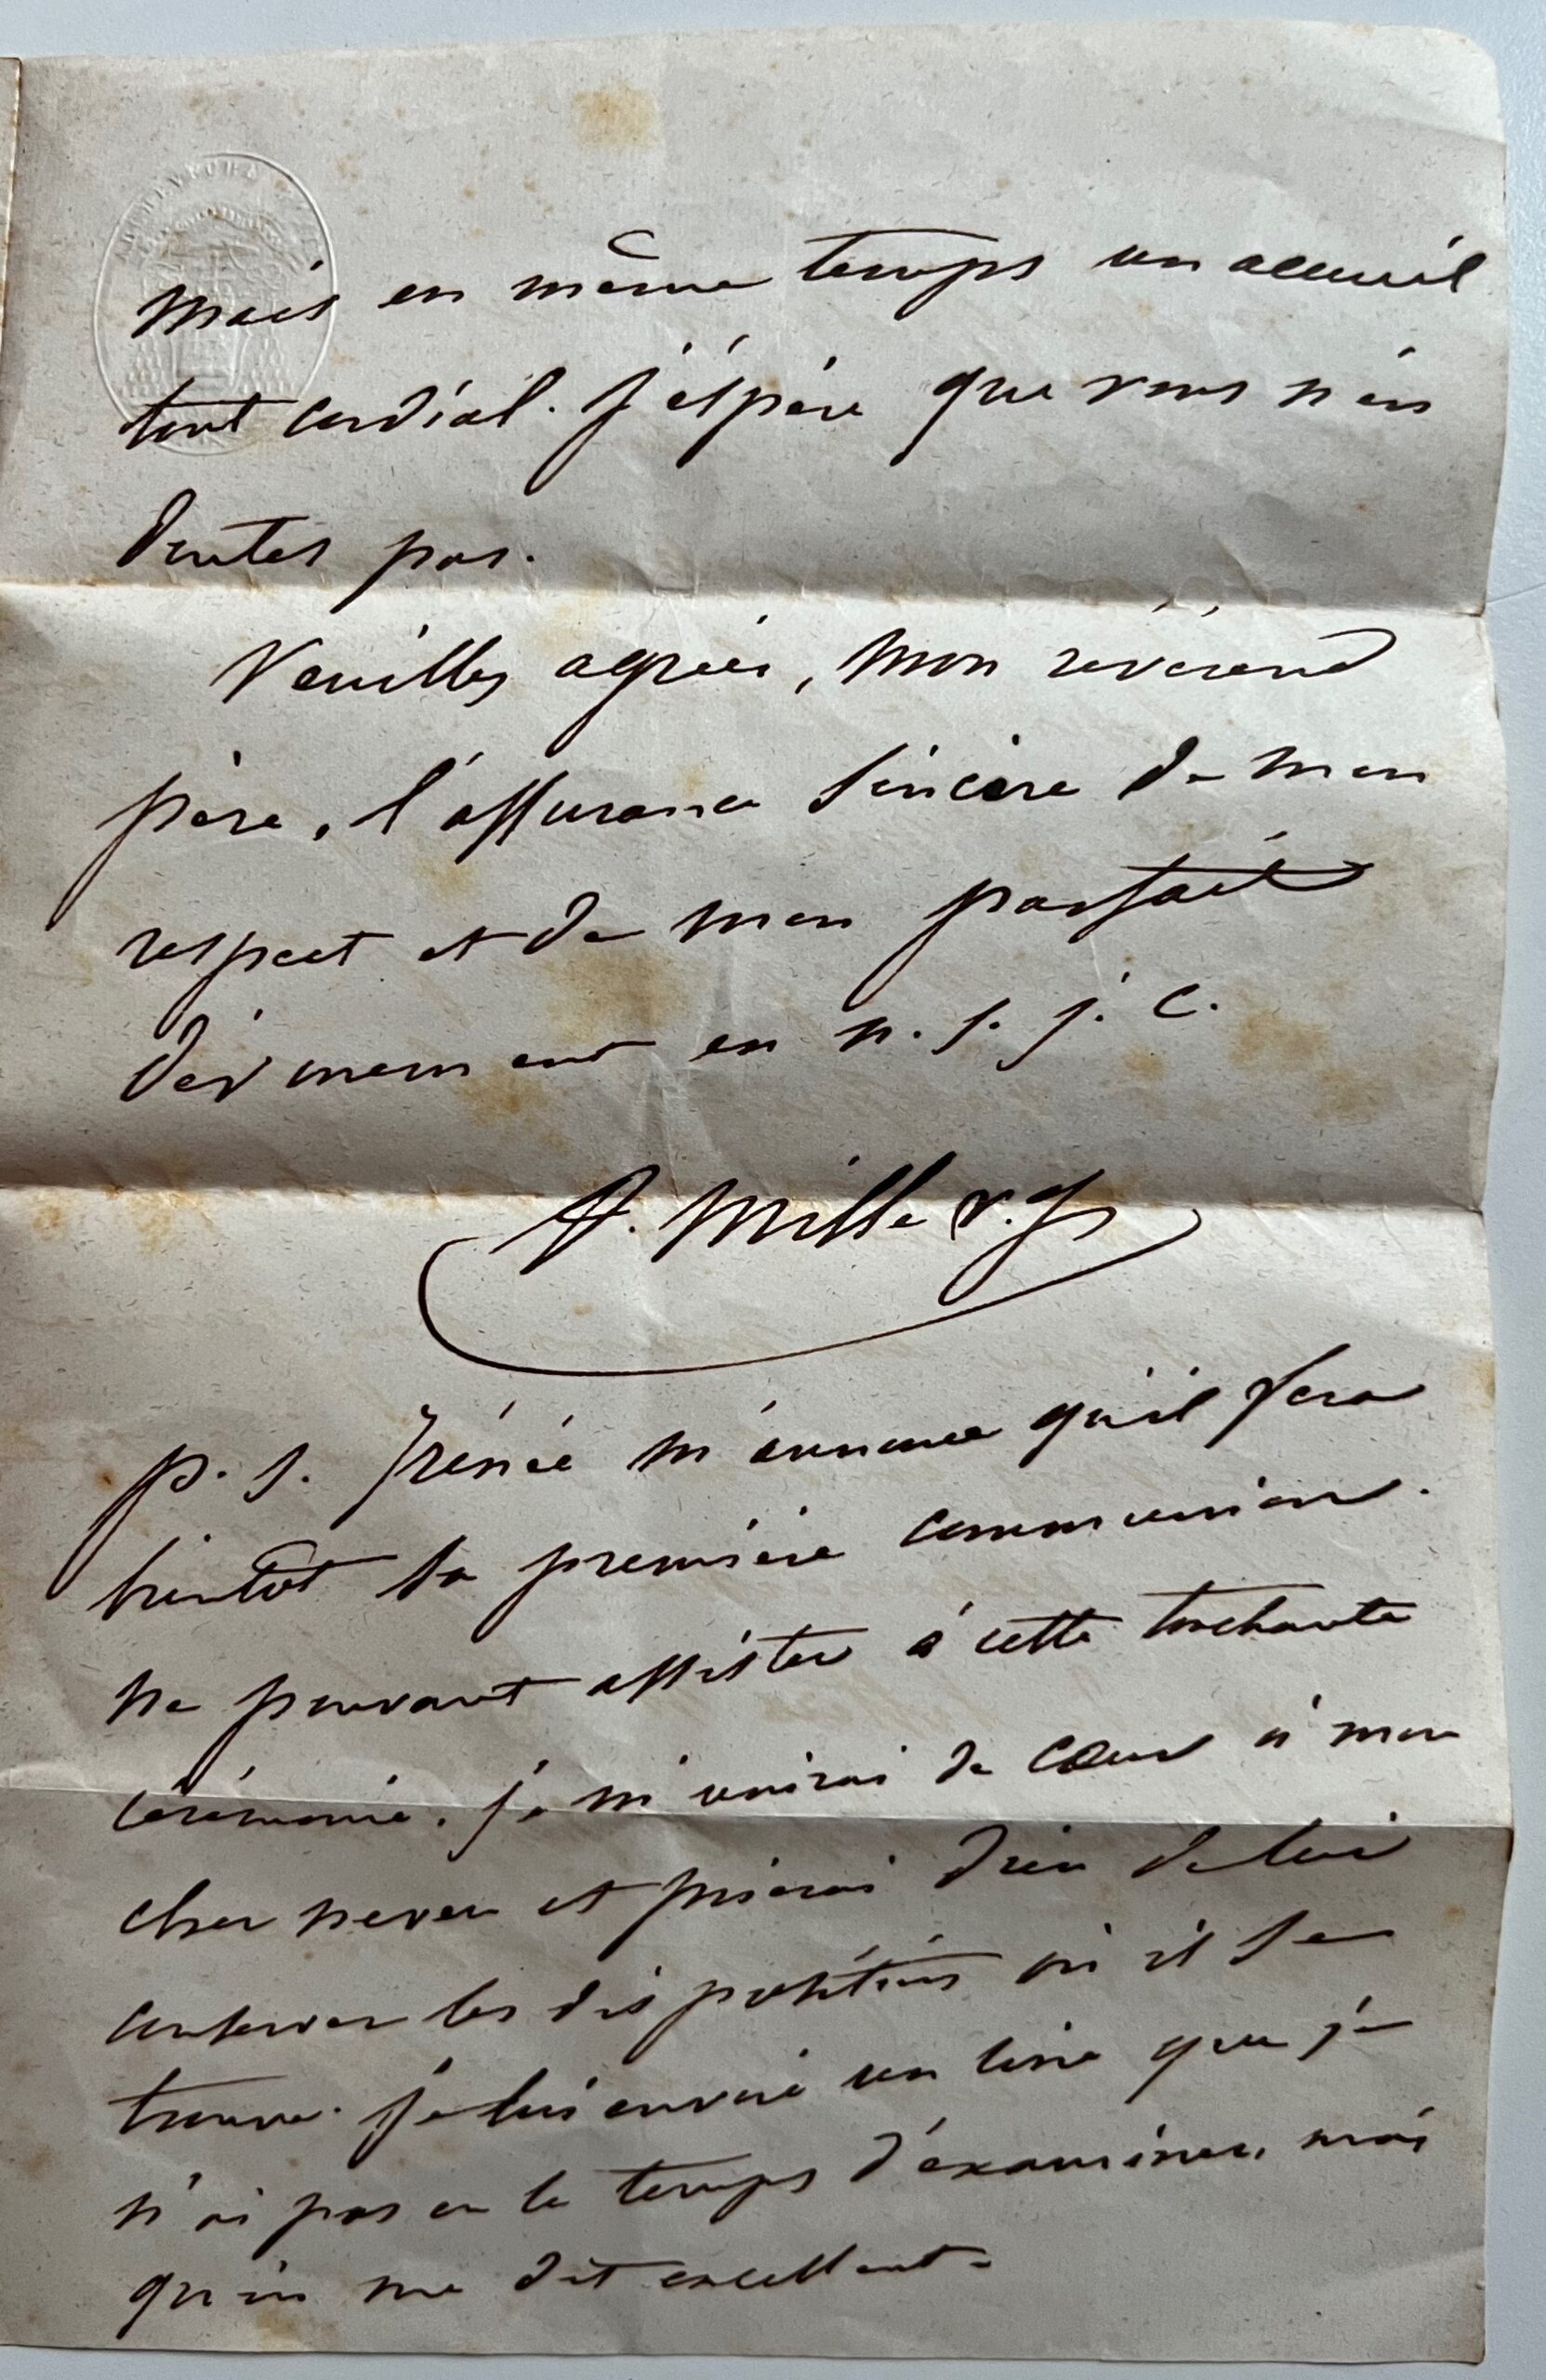 ARCHEVÊCHÉ
mais en même temps un accueil
tout cordial. j'éspère que vous n'en
doutes pas.
Veuilles agréer, mon révérend
père, l'assurance sincère de mon
respect et de mon parfait
dévouement en n. s. j. c.
A. Mille v. g
p. s. Irénée m'annonce qu'il fera
bientôt sa première communion.
ne pouvant assister à cette touchante
cérémonie, je m'unirai de cœur à mon
cher neveu et prierai dieu de lui
conserver les dispositions où il se
trouve. je lui envoie un livre que je
n'ai pas eu le temps d'examiner, mais
qu'on me dit excellent.